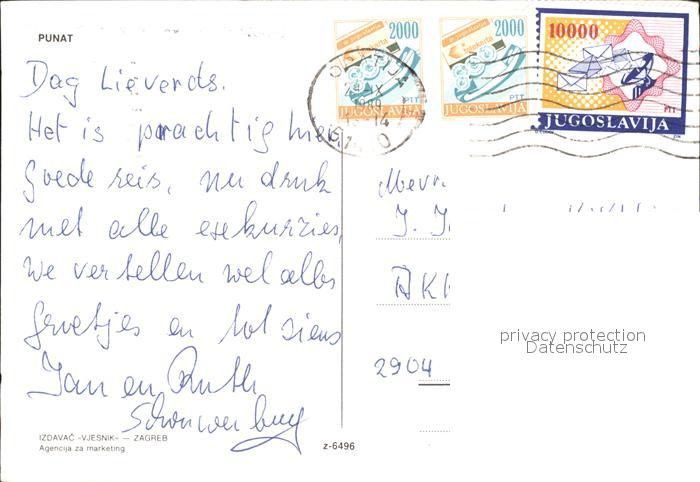 PUNAT
2000
2000
10000
PTT
PTT
PTT
JUGOSLAVIJA
JUGOSLAVIJA
JUGOSLAVIJA
Dag Lieverds.
Het is prachtig hier
Goede reis, nu druk
met alle exekurzies,
We vertellen wel alles
Groetjes en tot ziens
Jan en Ruth
Mevr.
J. J.
2904
privacy protection
Datenschutz
IZDAVAČ «VJESNIK» — ZAGREB
Agencija za marketing
z-6496